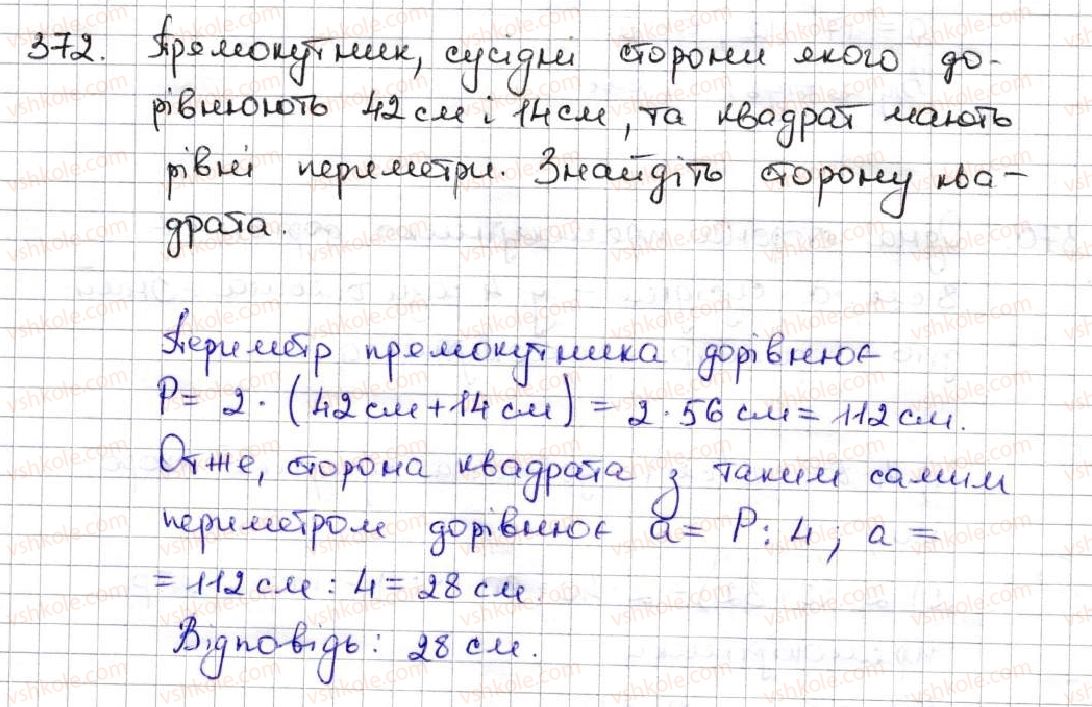 372. Прямокутник, сусідні сторони якого до-
рівнюють 42 см і 14 см, та квадрат мають
рівні периметри. Знайдіть сторону ква-
драта.
Периметр прямокутника дорівнює
P = 2 · (42 см + 14 см) = 2 · 56 см = 112 см.
Отже, сторона квадрата з таким самим
периметром дорівнює a = P : 4; a =
= 112 см : 4 = 28 см.
Відповідь: 28 см.